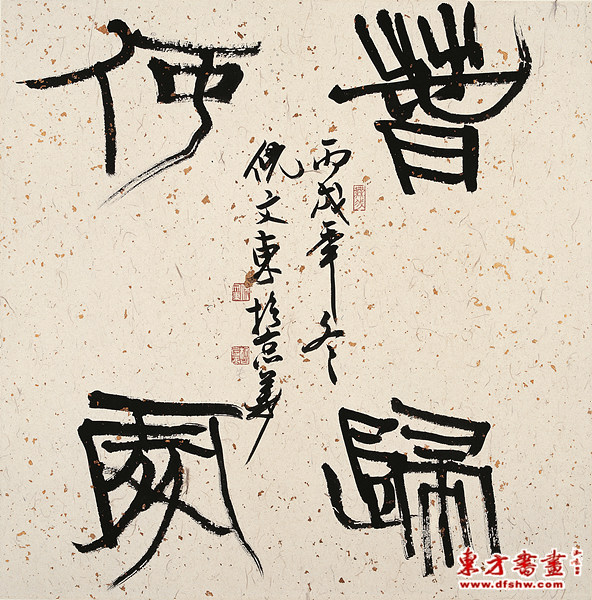 春歸
何處
丙戌年冬
倪文東於京華
東方書畫
www.dfshw.com